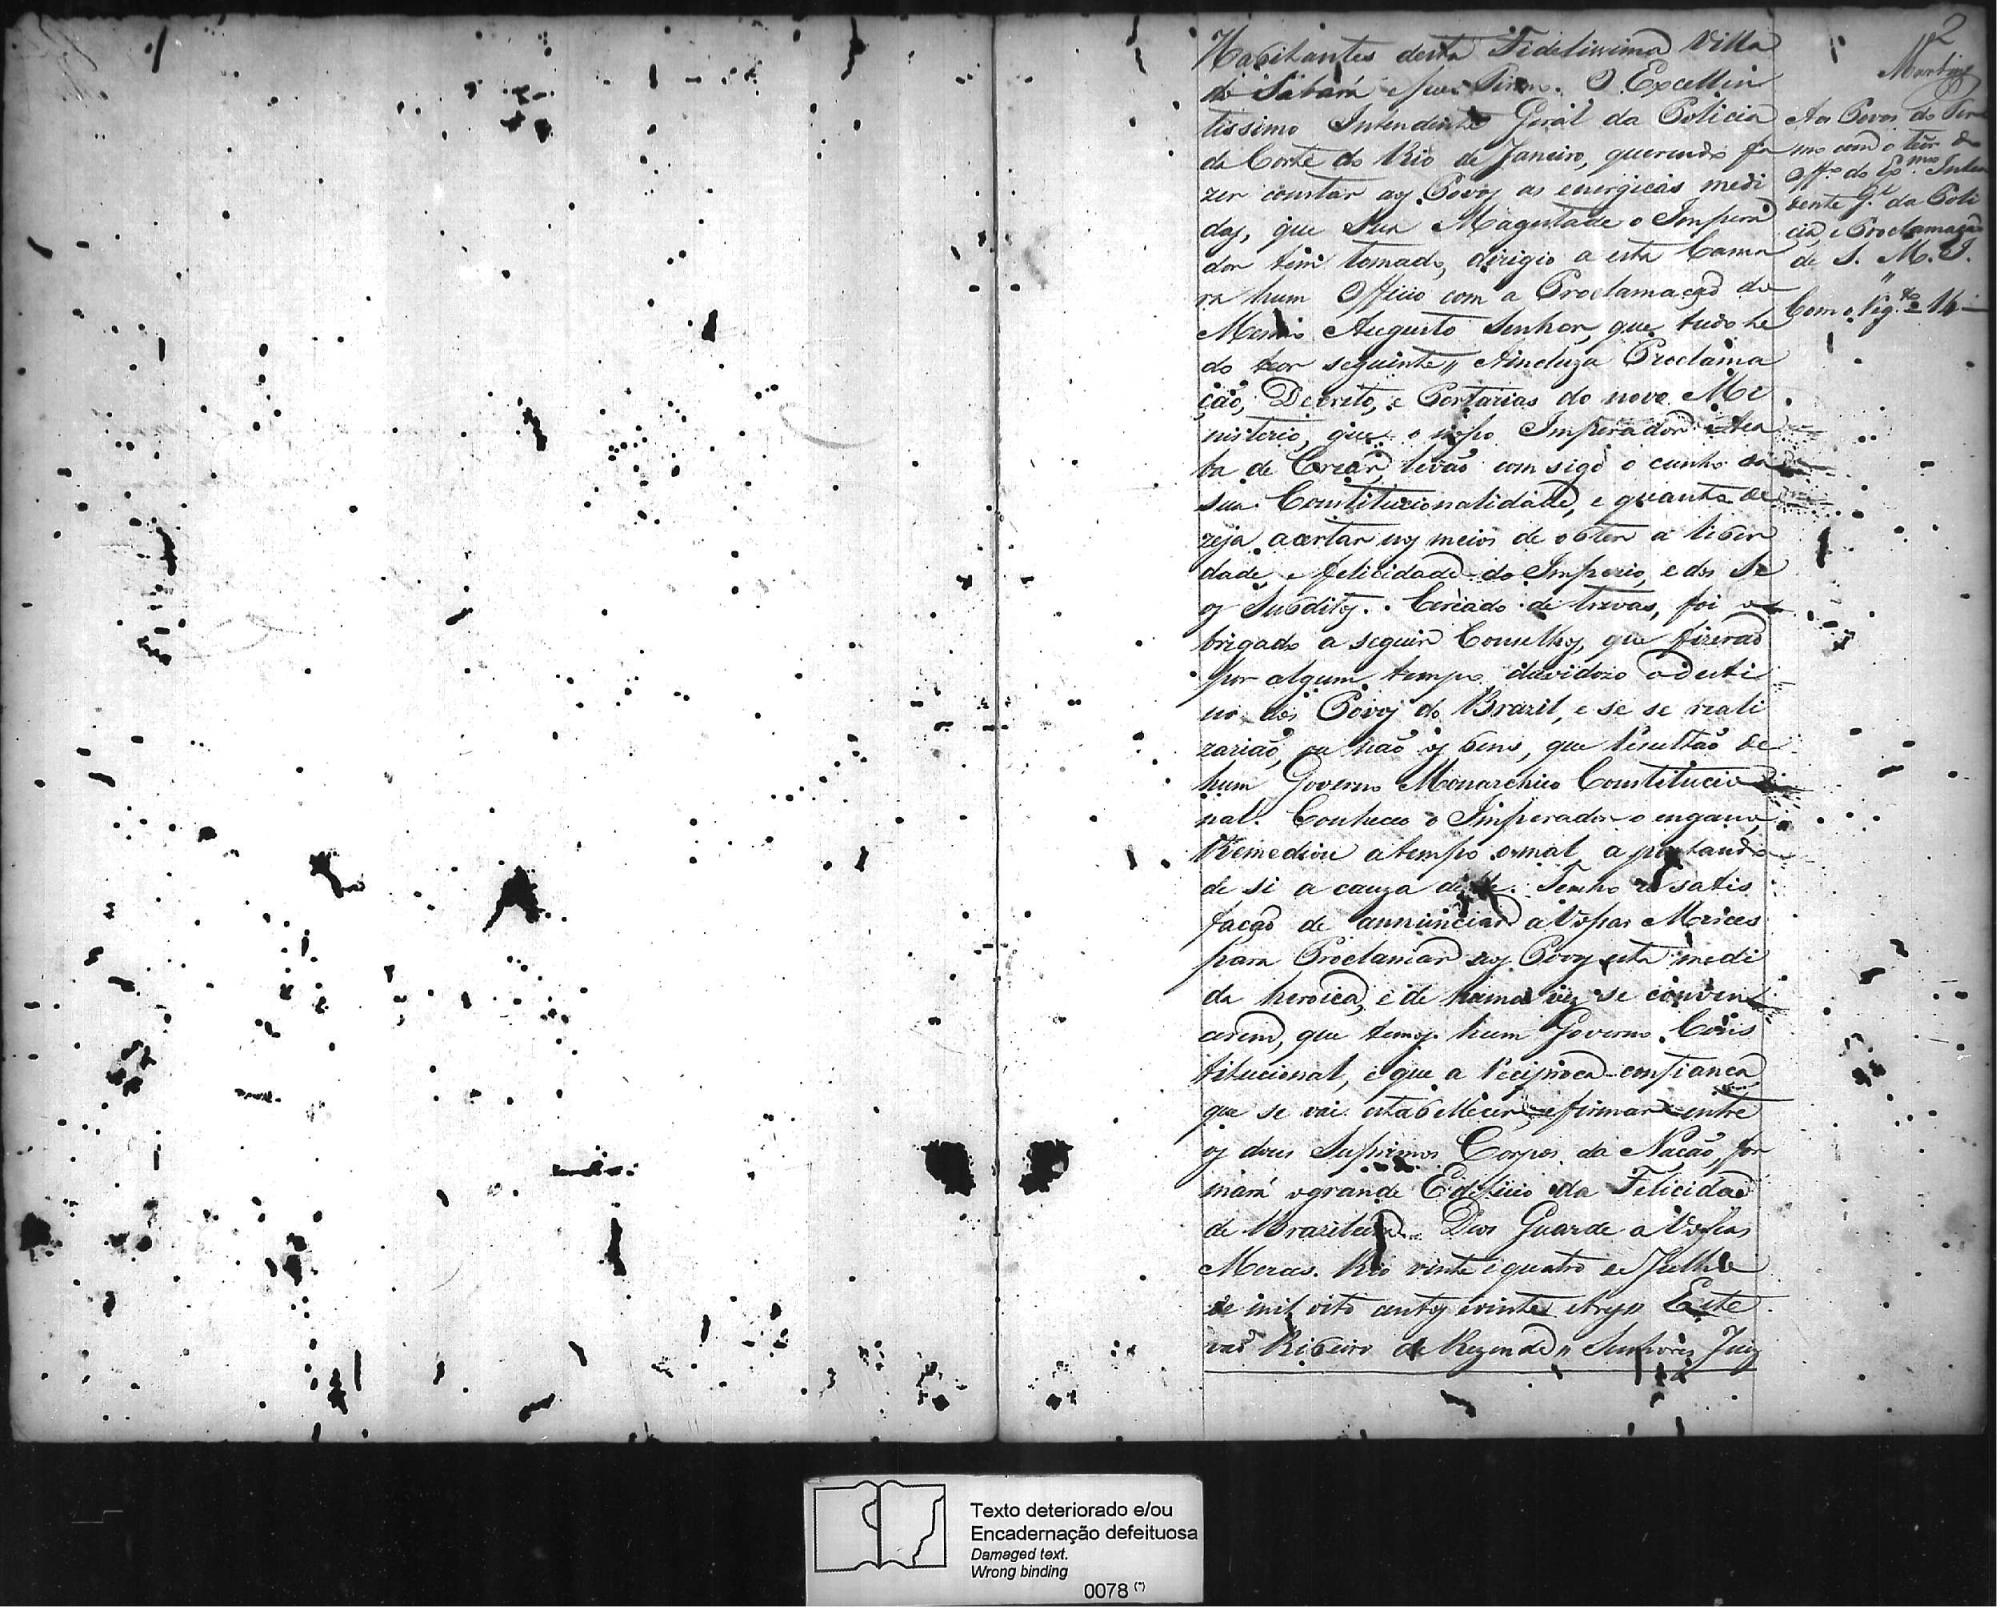 2
Martins
Habitantes desta Fidelissima Villa
de Sabará e seu Termo. O Excellen
tissimo Intendente Geral da Policia
da Corte do Rio de Janeiro, querendo fa
zer constar aos Povos as energicas medi
das, que Sua Magestade o Impera
dor tem tomado, dirigio a esta Cama
ra hum Officio com a Proclamação do
Mesmo Augusto Senhor, que tudo he
do teor seguinte,, A incluza Proclama
ção, Decreto, e Portarias do novo Mi
nisterio, que o nosso Imperador Aca
ba de Crear, levão com sigo o cunho da
sua Constitucionalidade, e quanto de
zeja acertar nos meios de obter a liber
dade, e felicidade do Imperio, e dos Se
os Subditos. Cercado de trevas, foi o
brigado a seguir Conselhos, que fizerão
por algum tempo duvidozo o desti
no dos Povos do Brazil, e se se reali
zarião, ou não os bens, que resultão de
hum Governo Monarchico Constitucio
nal. Conheceo o Imperador o engano,
Remediou a tempo o mal apartando
de si a cauza deste. Tenho a satis
facão de annunciar a Vossas Merces
para Proclamar aos Povos esta medi
da heroica, e de huma vez se conven
cerem, que temos hum Governo Cons
titucional, e que a reciproca confianca
que se vai estabellecer, e firmar entre
os dous Supremos Corpos da Nacão, for
mará o grande Edificio da Felicida
de Brazileira. Deos Guarde a Vossas
Merces. Rio vinte e quatro de Julho
de mil oito centos e vinte e tres,, Este
vão Ribeiro de Rezende,, Senhores Juiz
Aos Povos do Ter
mo com o teôr do
Off.º do Ex.mo Inten
dente G.l da Poli
cia, e Proclamação
de S. M. I.
Texto deteriorado e/ou
Encadernação defeituosa
Damaged text.
Wrong binding
0078 (*)